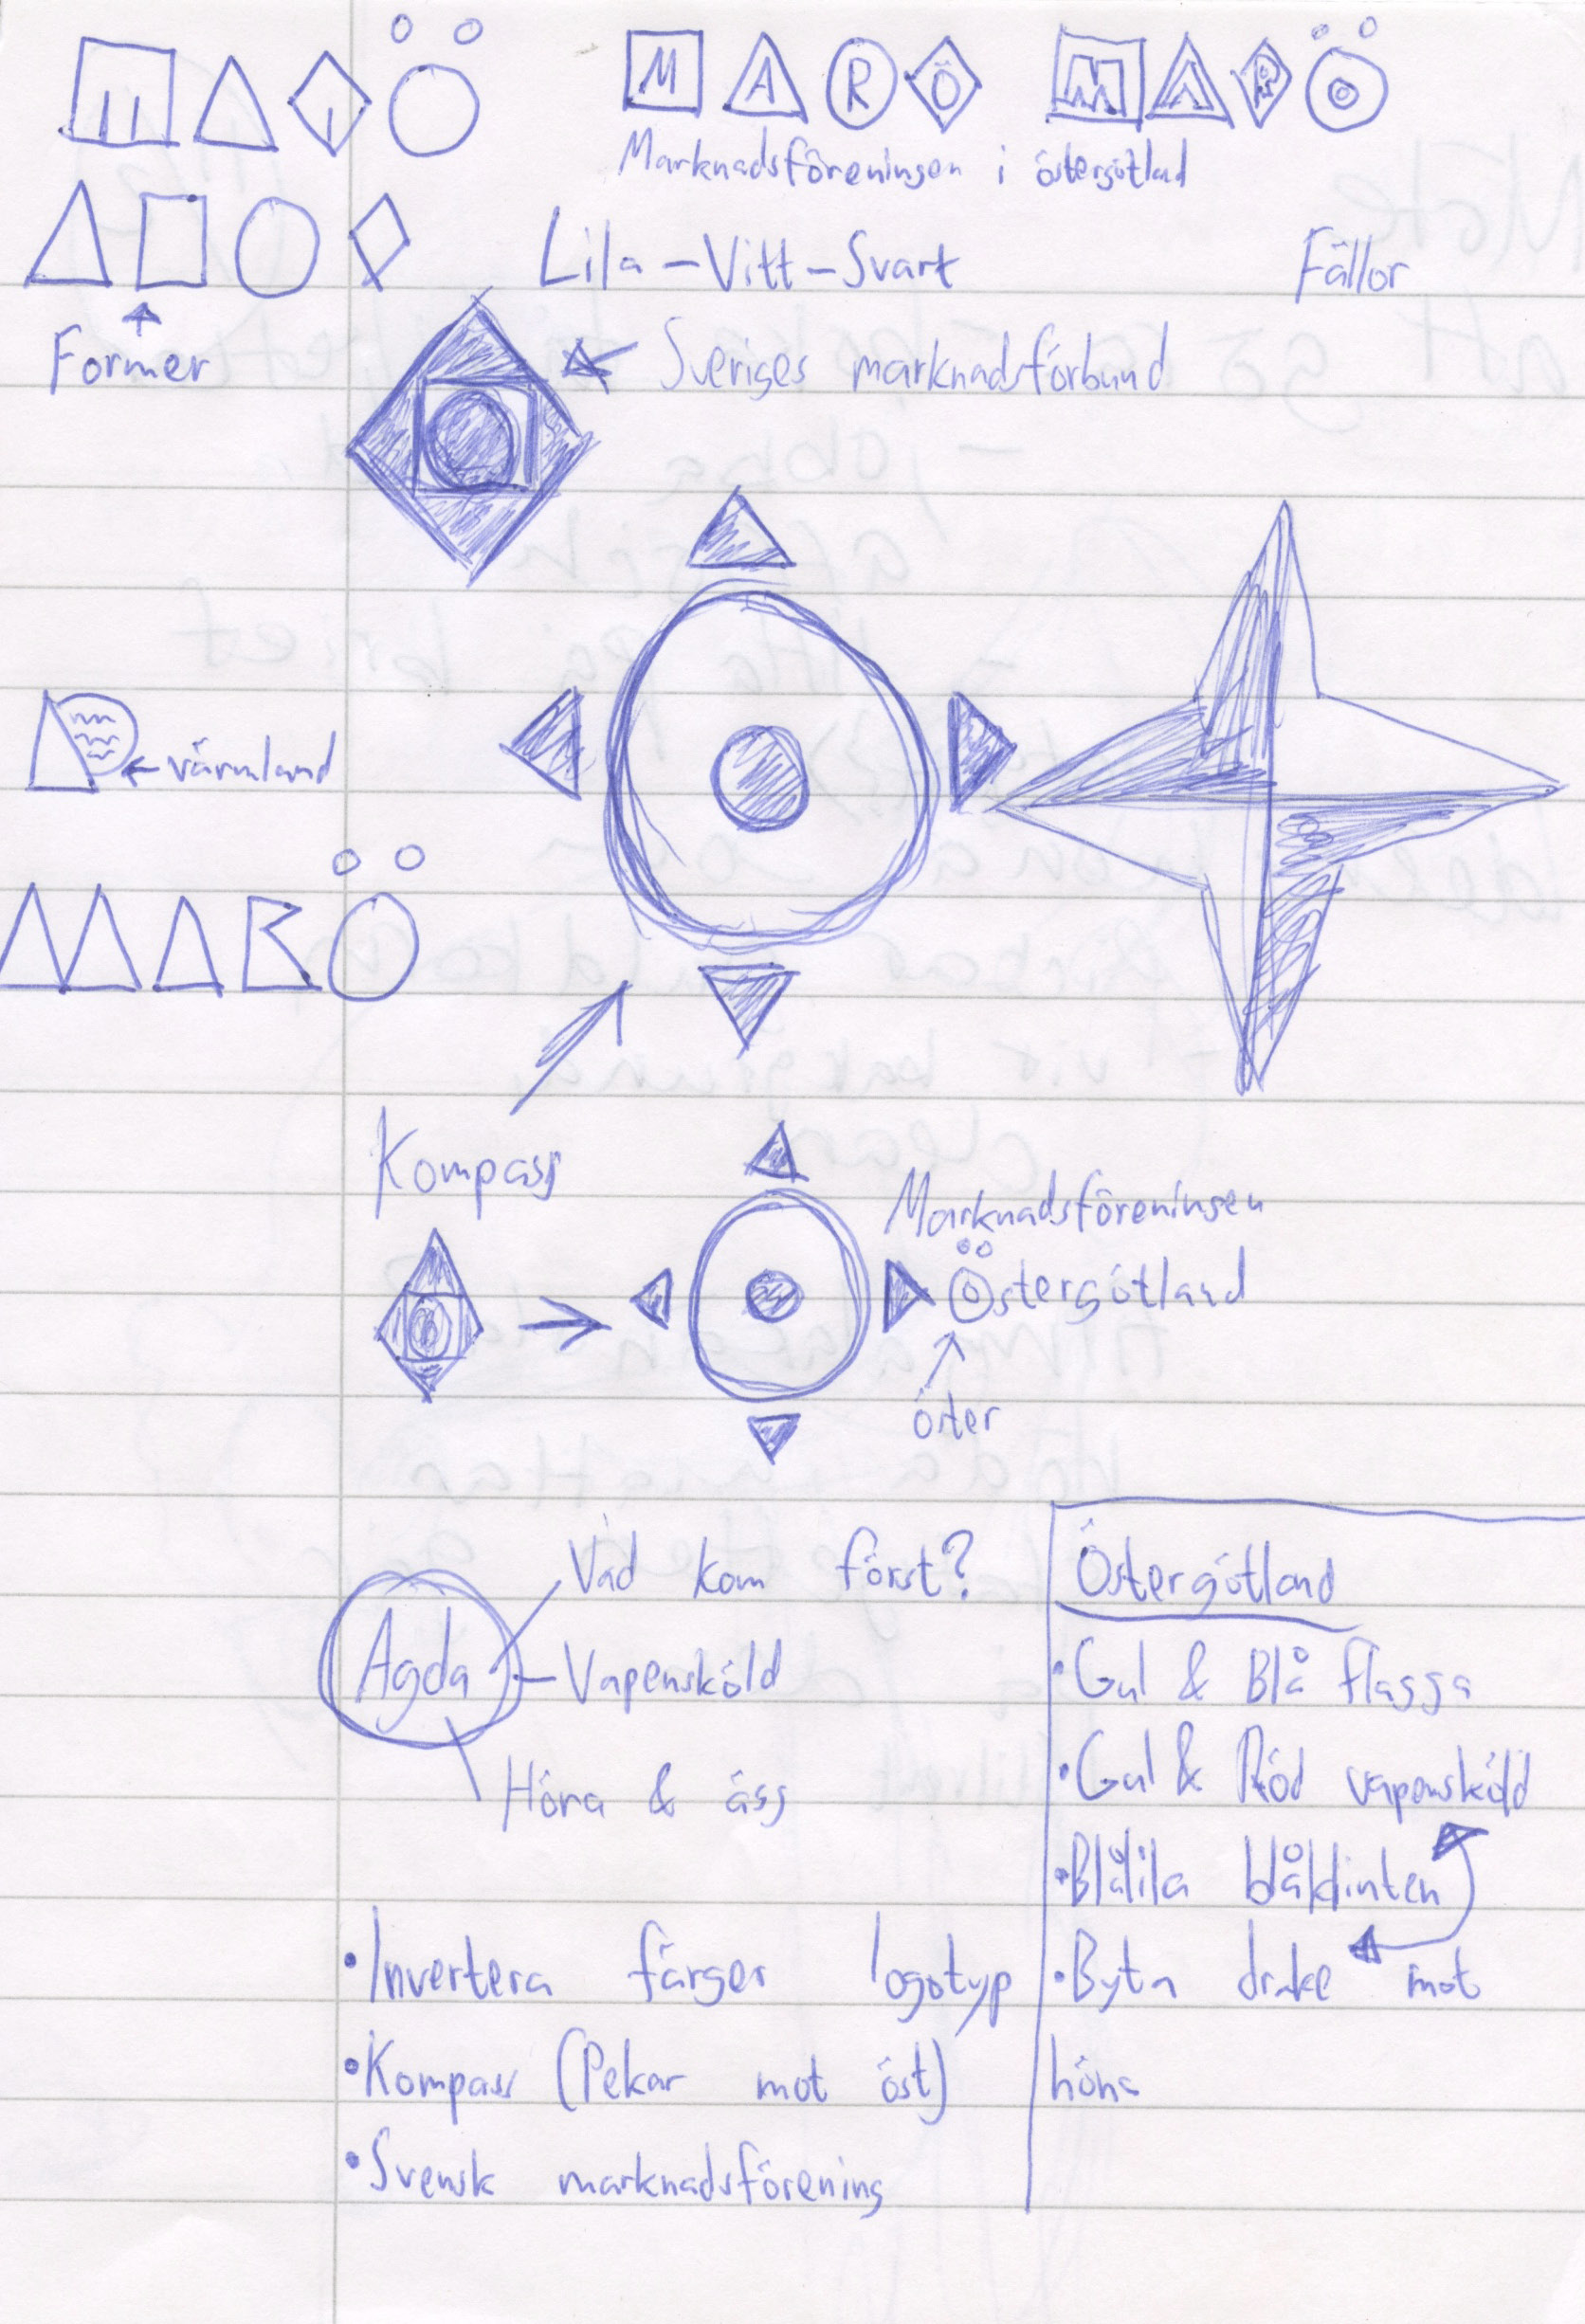 MARÖ MARÖ
Marknadsföreningen i östergötland
Lila - Vitt - Svart
Fällor
Former
Sveriges marknadsförbund
värmland
MARÖ
Kompass
Marknadsföreningen
Östergötland
öster
Vad kom först?
Agda
Vapensköld
Höna & ägg
Östergötland
•Gul & Blå flagga
•Gul & Röd vapensköld
•Blålila blåklinten
•Byta drake mot
höna
•Invertera färger logotyp
•Kompass (Pekar mot öst)
•Svensk marknadsförening